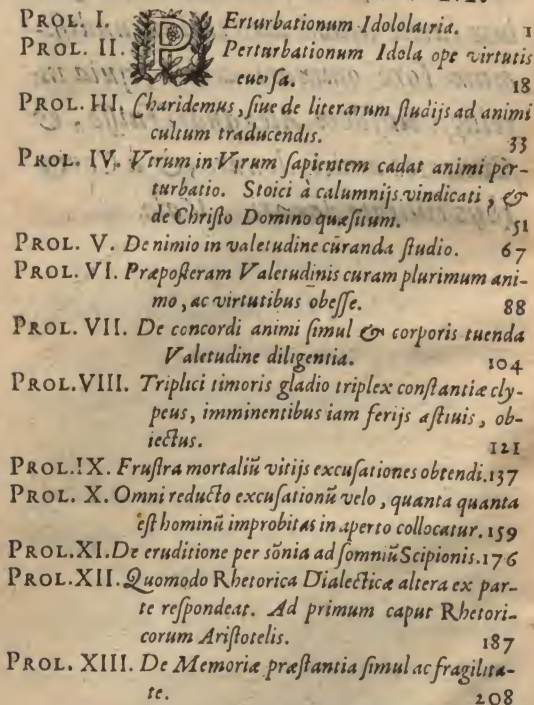 PROL. I. PErturbationum Idololatria. 1
PROL. II. Perturbationum Idola ope virtutis
euersa. 18
PROL. III. Charidemus, siue de literarum studijs ad animi
cultum traducendis. 33
PROL. IV. Vtrum in Virum sapientem cadat animi per-
turbatio. Stoici à calumnijs vindicati, &
de Christo Domino quæsitum. 51
PROL. V. De nimio in valetudine curanda studio. 67
PROL. VI. Præposteram Valetudinis curam plurimum ani-
mo, ac virtutibus obesse. 88
PROL. VII. De concordi animi simul & corporis tuenda
Valetudine diligentia. 104
PROL. VIII. Triplici timoris gladio triplex constantiæ cly-
peus, imminentibus iam ferijs æstiuis, ob-
iectus. 121
PROL. IX. Frustra mortaliũ vitijs excusationes obtendi. 137
PROL. X. Omni reducto excusationũ velo, quanta quanta
est hominũ improbitas in aperto collocatur. 159
PROL. XI. De eruditione per sõnia ad somniũ Scipionis. 176
PROL. XII. Quomodo Rhetorica Dialecticæ altera ex par-
te respondeat. Ad primum caput Rhetori-
corum Aristotelis. 187
PROL. XIII. De Memoriæ præstantia simul ac fragilita-
te. 208